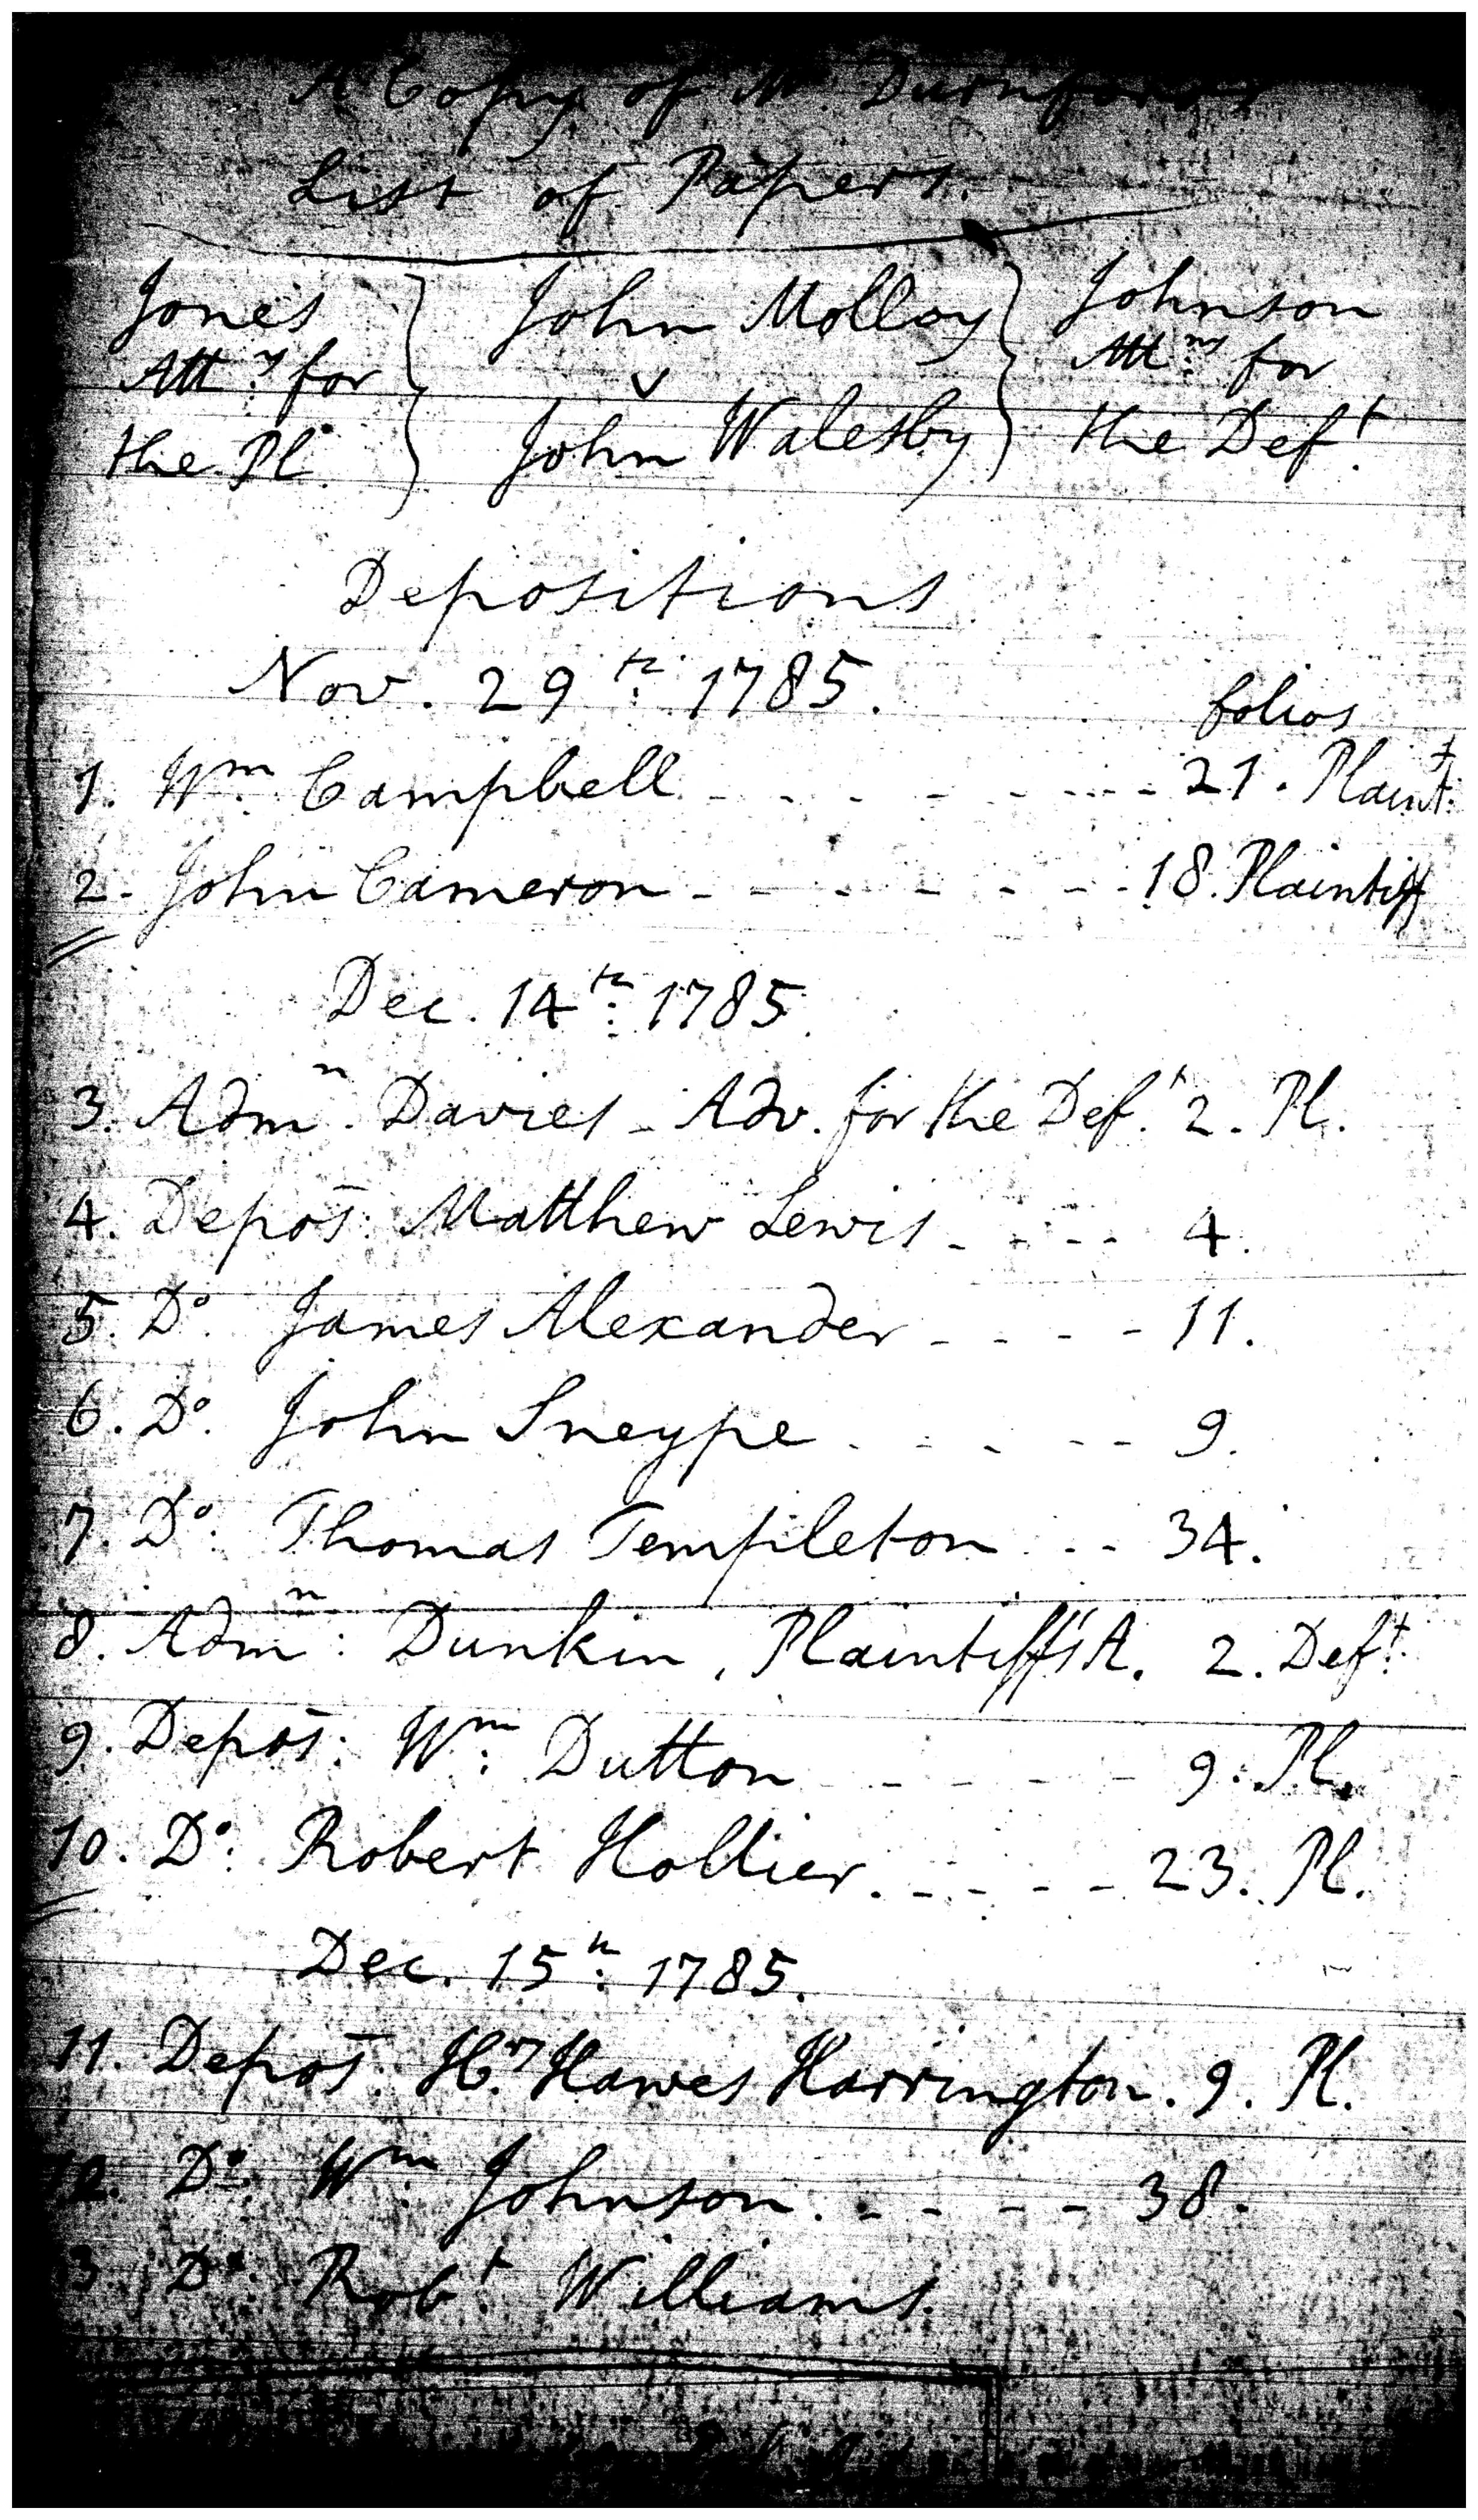 A Copy of Mr. Durnford's
List of Papers.
Jones } John Molloy } Johnson
Att.ny for } v } Att.ny for
the Pl. } John Walesby } the Def.t
Depositions
Nov. 29th: 1785.
folios
1. Wm. Campbell - - - - - - - 21. Plaint.t
2. John Cameron - - - - - - - 18. Plaintiff
Dec. 14th: 1785.
3. Admn. Davies - Adv. for the Def.t 2. Pl.
4. Depos: Matthew Lewis - - - - 4.
5. Do. James Alexander - - - - 11.
6. Do. John Sneype - - - - - 9.
7. Do: Thomas Templeton - - - 34.
8. Admn: Dunkin, Plaintiff's A. 2. Def.t
9. Depos: Wm: Dutton - - - - - 9. Pl.
10. Do: Robert Hollier - - - - - 23. Pl.
Dec. 15th: 1785.
11. Depos. Hy. Hawes Harrington. 9. Pl.
12. Do. Wm. Johnson - - - - - 38.
13. Do. Robt. Williams.